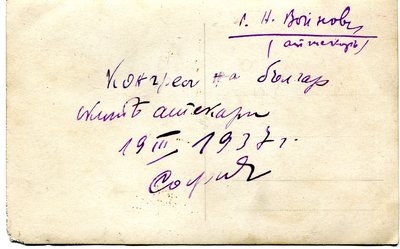 г. Н. Войнов
(аптекарь)
Конгрес на българ
ските аптекари
19 III 1937 г.
София